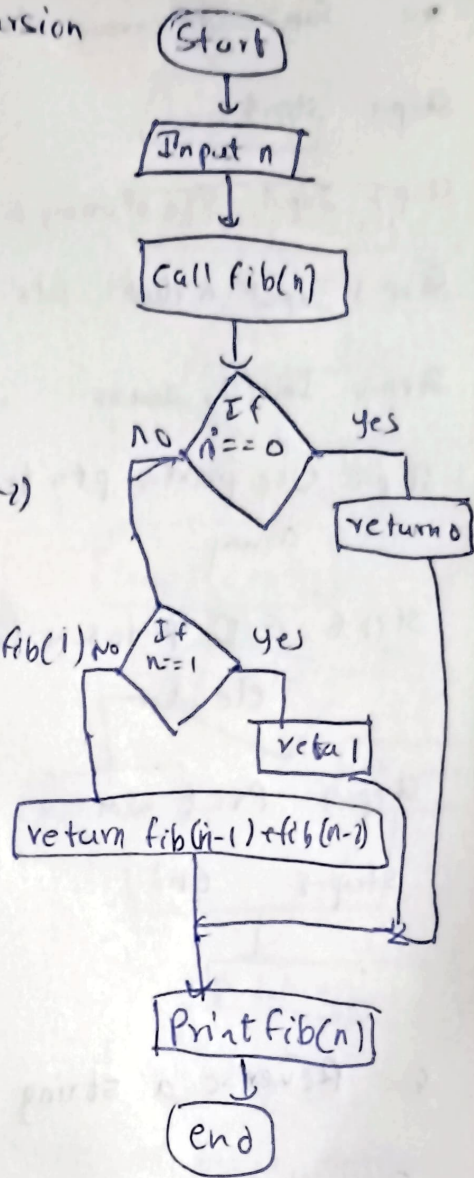 ursion
Start
Input n
Call fib(n)
If
n == 0
no
yes
-2)
return 0
fib(i) No
If
n==1
yes
retu 1
return fib(n-1) + fib(n-2)
Print fib(n)
end
Step
Reverse a string